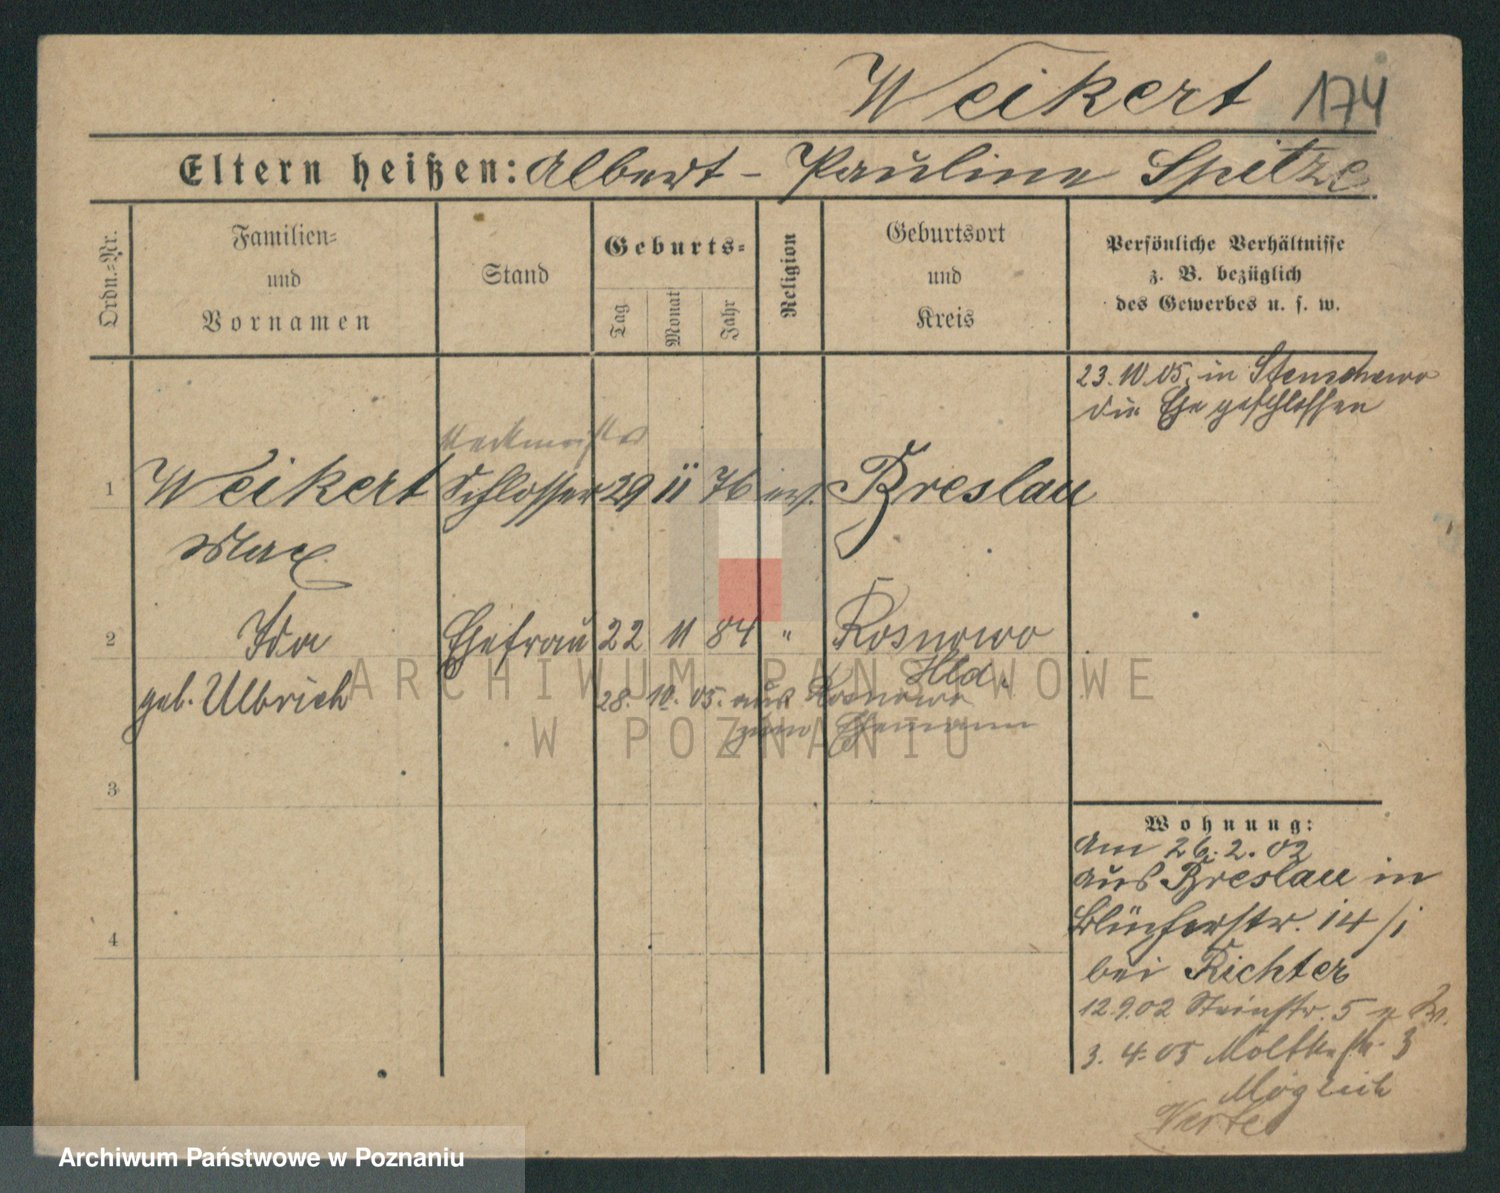 Weikert 174
Eltern heißen: Albert - Pauline Spitze
Ordn.=Nr.
Familien=
und
Vornamen
Stand
Geburts=
Tag
Monat
Jahr
Religion
Geburtsort
und
Kreis
Persönliche Verhältnisse
z. B. bezüglich
des Gewerbes u. s. w.
23.10.05. in Stenschewo
die Ehe geschlossen
1 Weikert Schlosser 29 11 76 ev. Breslau
Max
2 Ida Ehefrau 22 11 84 " Rosnowo
Hld.
geb. Ulbrich
28. 10. 05. aus Rosnowo
zum Ehemann
3
4
Wohnung:
Am 26.2.02
aus Breslau in
Blücherstr. 14/I
bei Richter
12.9.02 Steinstr. 5
3. 4. 05 Moltkestr. 3
ARCHIWUM PAŃSTWOWE
W POZNANIU
Archiwum Państwowe w Poznaniu